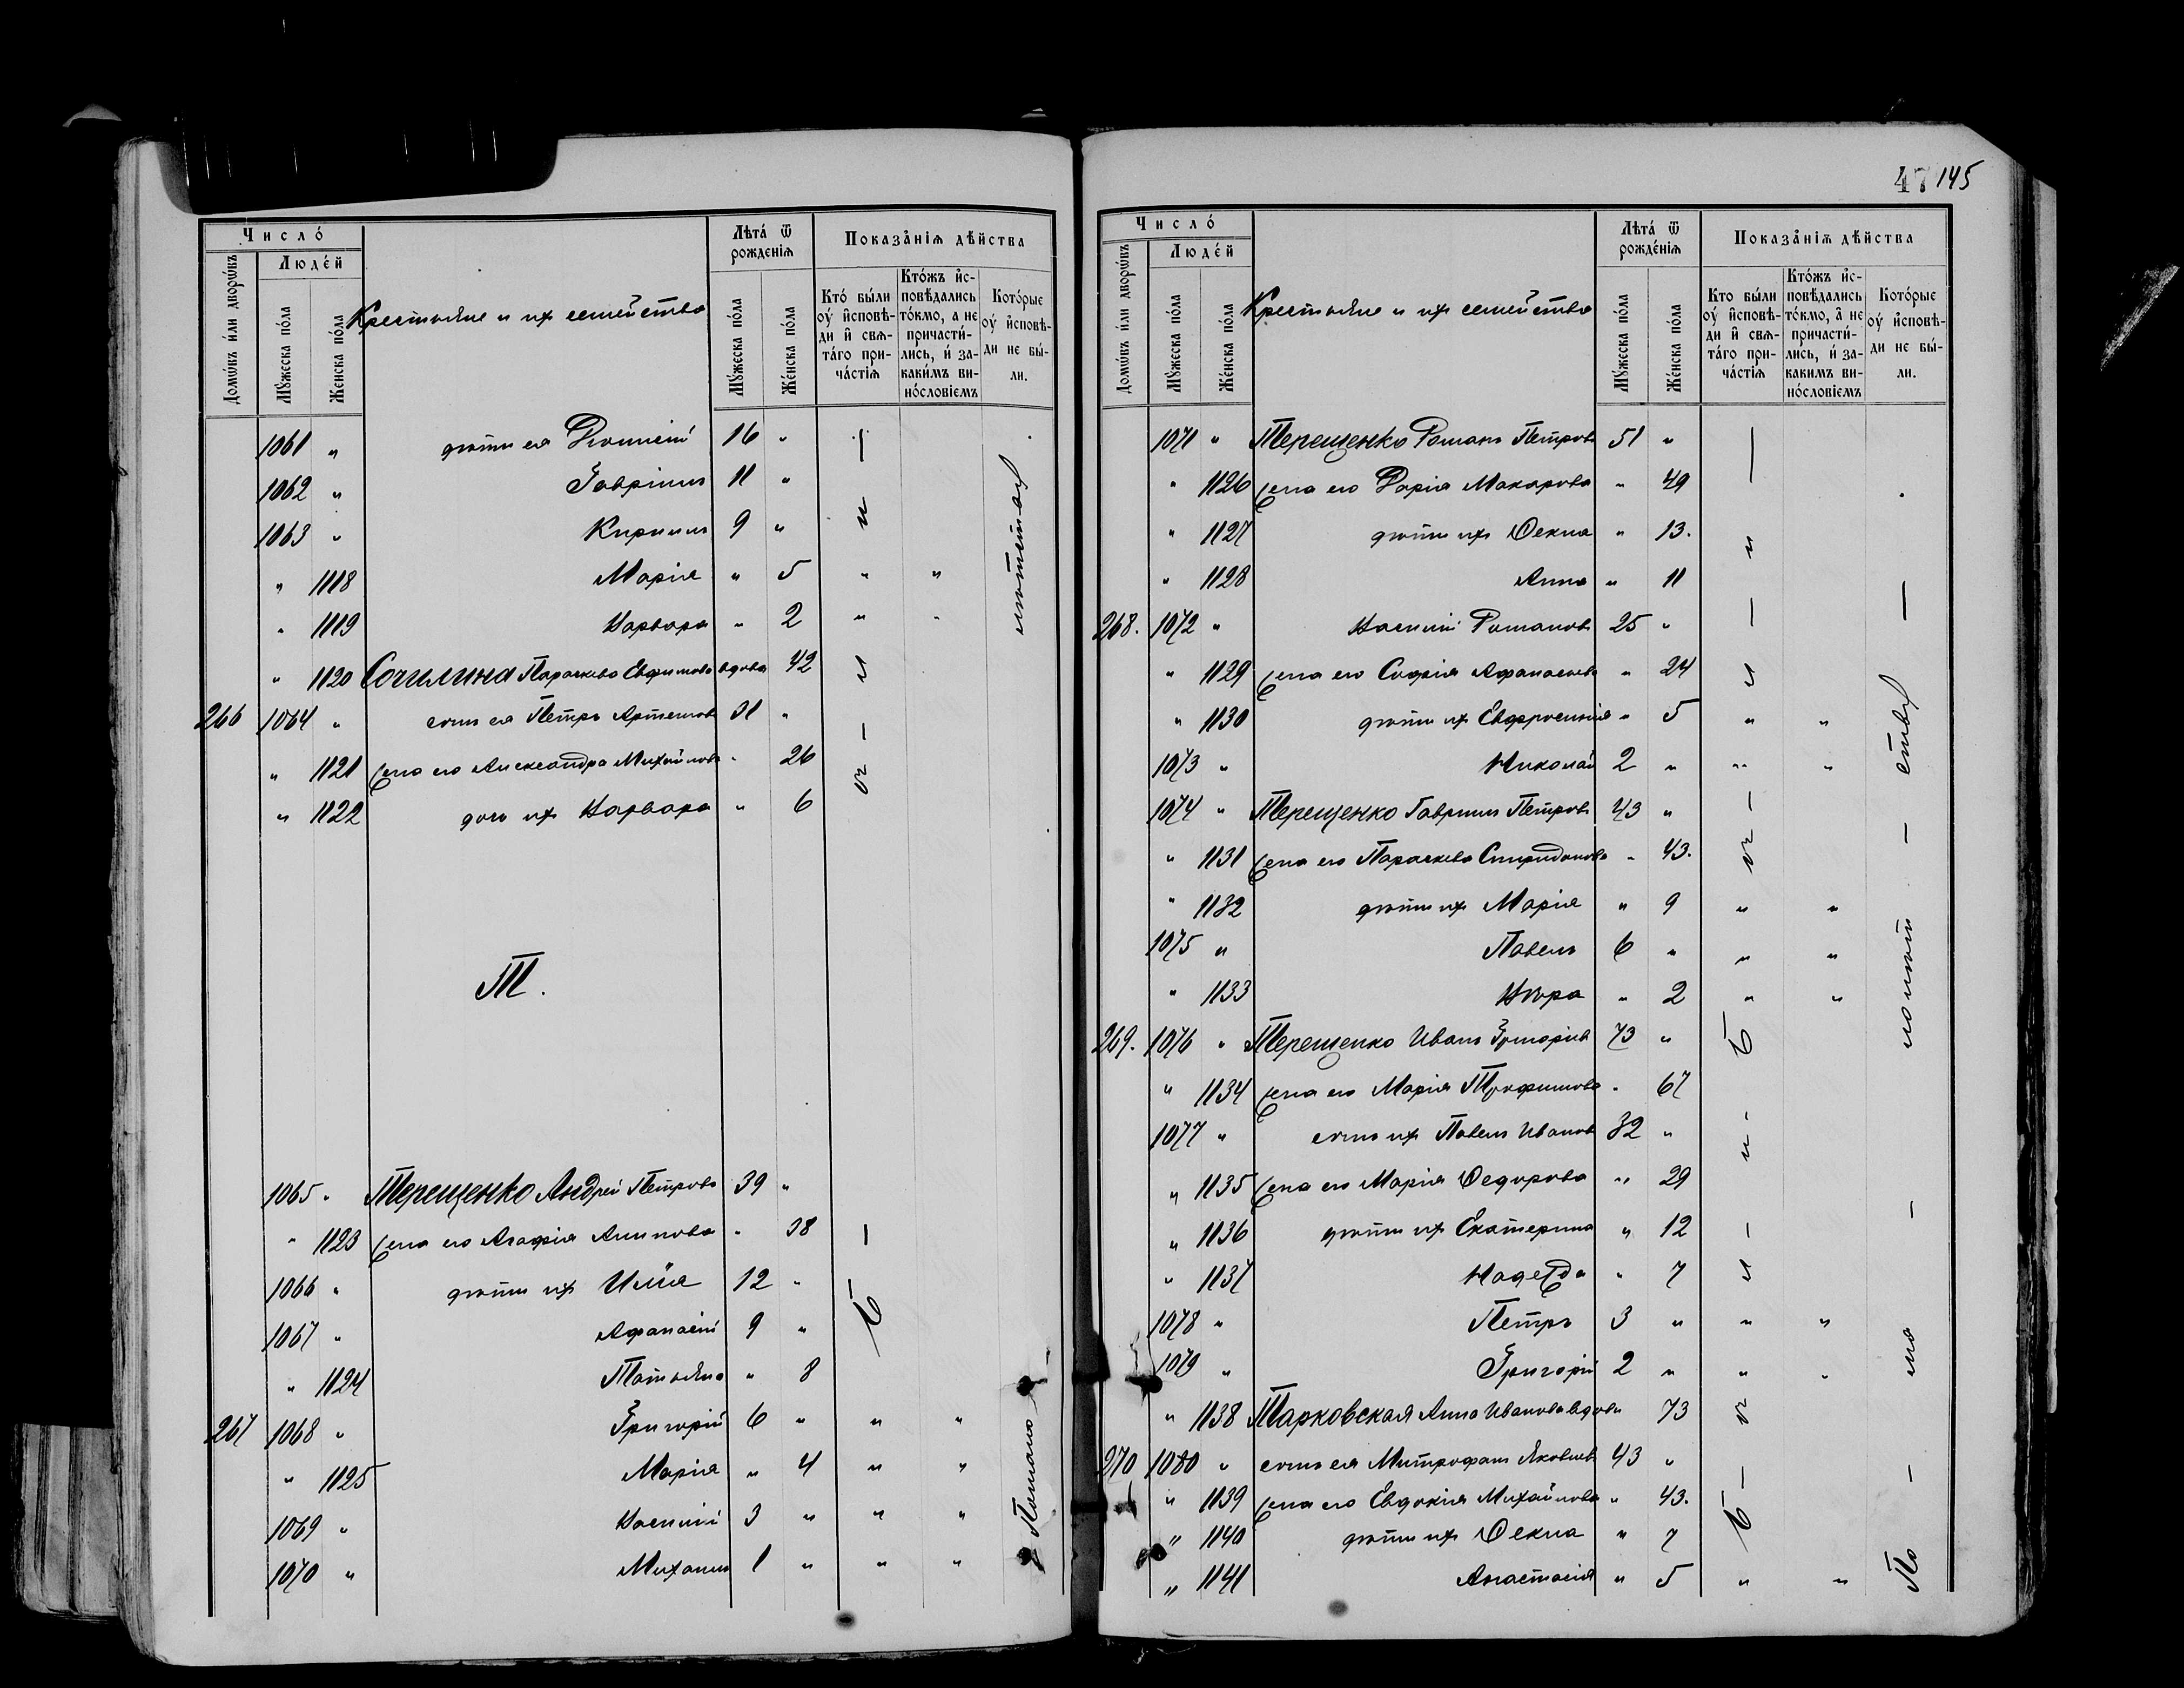 47 145
Число́
Людє́й
Домѡ́въ и҆лѝ дворѡ́въ
Мꙋ́жеска по́ла
Же́нска по́ла
Крестьяне и ихъ семейства
Лѣта́ ѿ рождє́нїѧ
Мꙋ́жеска по́ла
Же́нска по́ла
Показа̑нїѧ дѣ́йства
Кто́ бы́ли
оу҆ и҆сповѣ-
ди и҆ свѧ-
та́гѡ при-
ча́стїѧ
Кто́жъ и҆с-
повѣ́дались
то́кмо, а҆ не
причасти́-
лись, и҆ за-
каки́мъ ви-
носло́вїемъ
Кото́рые
оу҆ и҆сповѣ́-
ди не бы́-
ли.
1061 " дѣти ея Дионисій 16 "
1062 " Гавріилъ 11 "
1063 " Кириллъ 9 "
" 1118 Марія " 5 " "
" 1119 Варвара " 2 " "
" 1120 Сочилина Параскева Евфимова вдова 42
266 1064 " сынъ ея Петръ Артемовъ 31 "
" 1121 жена его Александра Михайлова " 26
" 1122 дочь ихъ Варвара " 6
Т.
1065 " Терещенко Андрей Петровъ 39 "
" 1123 жена его Агафія " 38
1066 " дѣти ихъ Илія 12 "
1067 " Афанасій 9 "
" 1124 Татьяна " 8
267 1068 " Григорій 6 " " "
" 1125 Марія " 4 " "
1069 " Василій 3 " " "
1070 " Михаилъ 1 " " "
Число́
Людє́й
Домѡ́въ и҆лѝ дворѡ́въ
Мꙋ́жеска по́ла
Же́нска по́ла
Крестьяне и ихъ семейства
Лѣта́ ѿ рождє́нїѧ
Мꙋ́жеска по́ла
Же́нска по́ла
Показа̑нїѧ дѣ́йства
Кто бы́ли
оу҆ и҆сповѣ-
ди и҆ свѧ-
та́гѡ при-
ча́стїѧ
Кто́жъ и҆с-
повѣ́дались
то́кмо, а҆ не
причасти́-
лись, и҆ за-
каки́мъ ви-
носло́вїемъ
Кото́рые
оу҆ и҆сповѣ́-
ди не бы́-
ли.
1071 " Терещенко Романъ Петровъ 51 "
" 1126 жена его Дарія Макарова " 49
" 1127 дѣти ихъ Ѳекла " 13.
" 1128 Анна " 11
268. 1072 " Василій Романовъ 25 "
" 1129 жена его Софія Афанасьева " 24
" 1130 дѣти ихъ Евфросинія " 5 " "
1073 " Николай 2 " " "
1074 " Терещенко Гавріилъ Петровъ 43 "
" 1131 жена его Параскева Спиридонова " 43.
" 1132 дѣти ихъ Марія " 9 " "
1075 " Павелъ 6 " " "
" 1133 Вѣра " 2 " "
269. 1076 " Терещенко Иванъ Григоріевъ 73 "
" 1134 жена его Марія Трофимова " 67
1077 " сынъ ихъ Павелъ Ивановъ 32 "
" 1135 жена его Марія Ѳедорова " 29
" 1136 дѣти ихъ Екатерина " 12
" 1137 Надежда " 7
1078 " Петръ 3 " " "
1079 " Григорій 2 " " "
" 1138 Тарковская Анна Иванова вдова 73
270 1080 " сынъ ея Митрофанъ Яковлевъ 43 "
" 1139 жена его Евдокія Михайлова " 43.
" 1140 дѣти ихъ Ѳекла " 7
" 1141 Анастасія " 5 " "